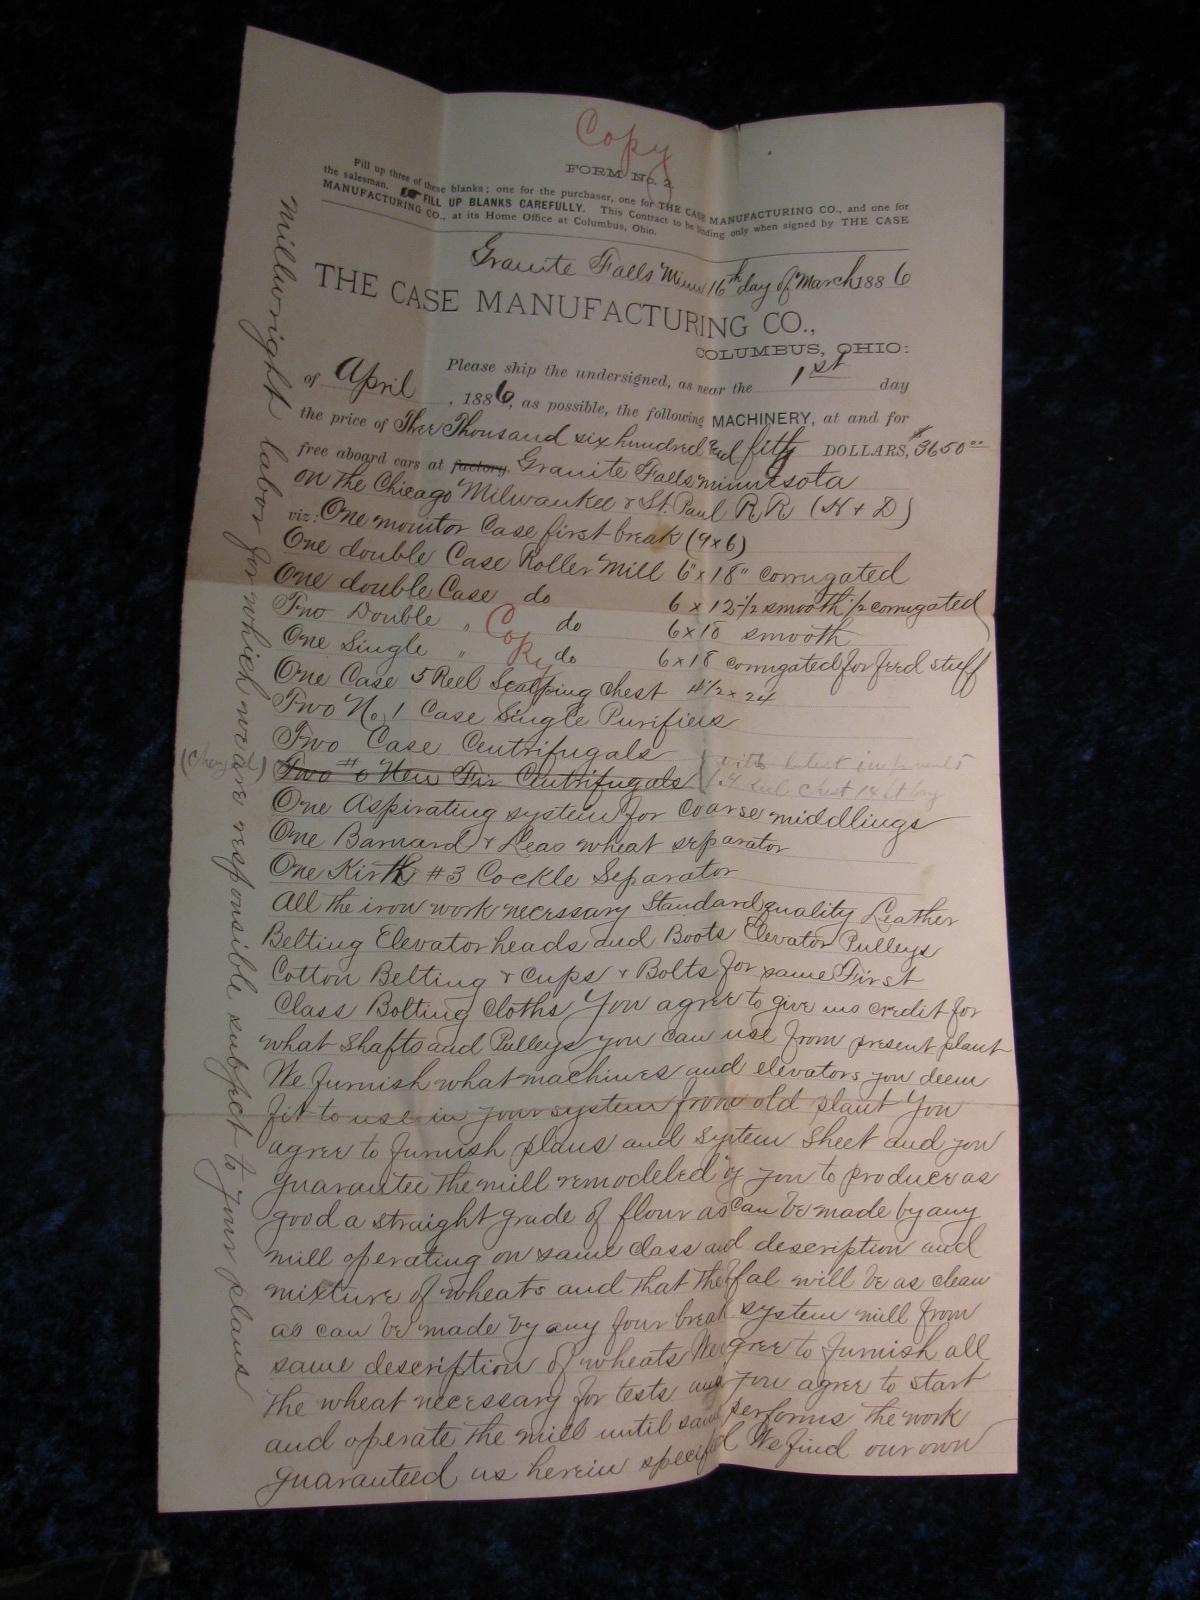 Copy
FORM No. 2.
Fill up three of these blanks; one for the purchaser, one for THE CASE MANUFACTURING CO., and one for
the salesman. FILL UP BLANKS CAREFULLY. This Contract to be binding only when signed by THE CASE
MANUFACTURING CO., at its Home Office at Columbus, Ohio.
Granite Falls Minn 16th day of March 1886
THE CASE MANUFACTURING CO.,
COLUMBUS, OHIO:
Please ship the undersigned, as near the 1st day
of April, 1886, as possible, the following MACHINERY, at and for
the price of Three Thousand six hundred and fifty DOLLARS, $3650 00
free aboard cars at factory. Granite Falls minnesota
on the Chicago Milwaukee & St. Paul RR (H & D)
viz: One monitor Case first break (9x6)
One double Case Roller Mill 6" x 18" corrugated
One double Case do 6 x 12 1/2 smooth 1/2 corrugated
Two Double " do 6x18 smooth
Copy
One Single " do 6x18 corrugated for feed stuff
One Case 5 Reel Scalping chest 4 1/2 x 24
Two No. 1 Case Single Purifiers
Two Case Centrifugals
Two #0 New Centrifugals
with latest
One Aspirating system for coarse middlings
One Barnard & Leas wheat separator
One Kirk #3 Cockle Separator
All the iron work necessary Standard quality Leather
Belting Elevator heads and Boots Elevator Pulleys
Cotton Belting & Cups & Bolts for same First
Class Bolting Cloths You agree to give us credit for
what shafts and Pulleys you can use from present plant
We furnish what machines and elevators you deem
fit to use in your system from old plant You
agree to furnish plans and system sheet and you
guarantee the mill remodeled by you to produce as
good a straight grade of flour as can be made by any
mill operating on same class and description and
mixture of wheats and that the ofal will be as clean
as can be made by any four break system mill from
same description of wheats We agree to furnish all
the wheat necessary for tests and you agree to start
and operate the mill until same performs the work
guaranteed as herein specified We find our own
millwright labor for which we are responsible subject to your plans